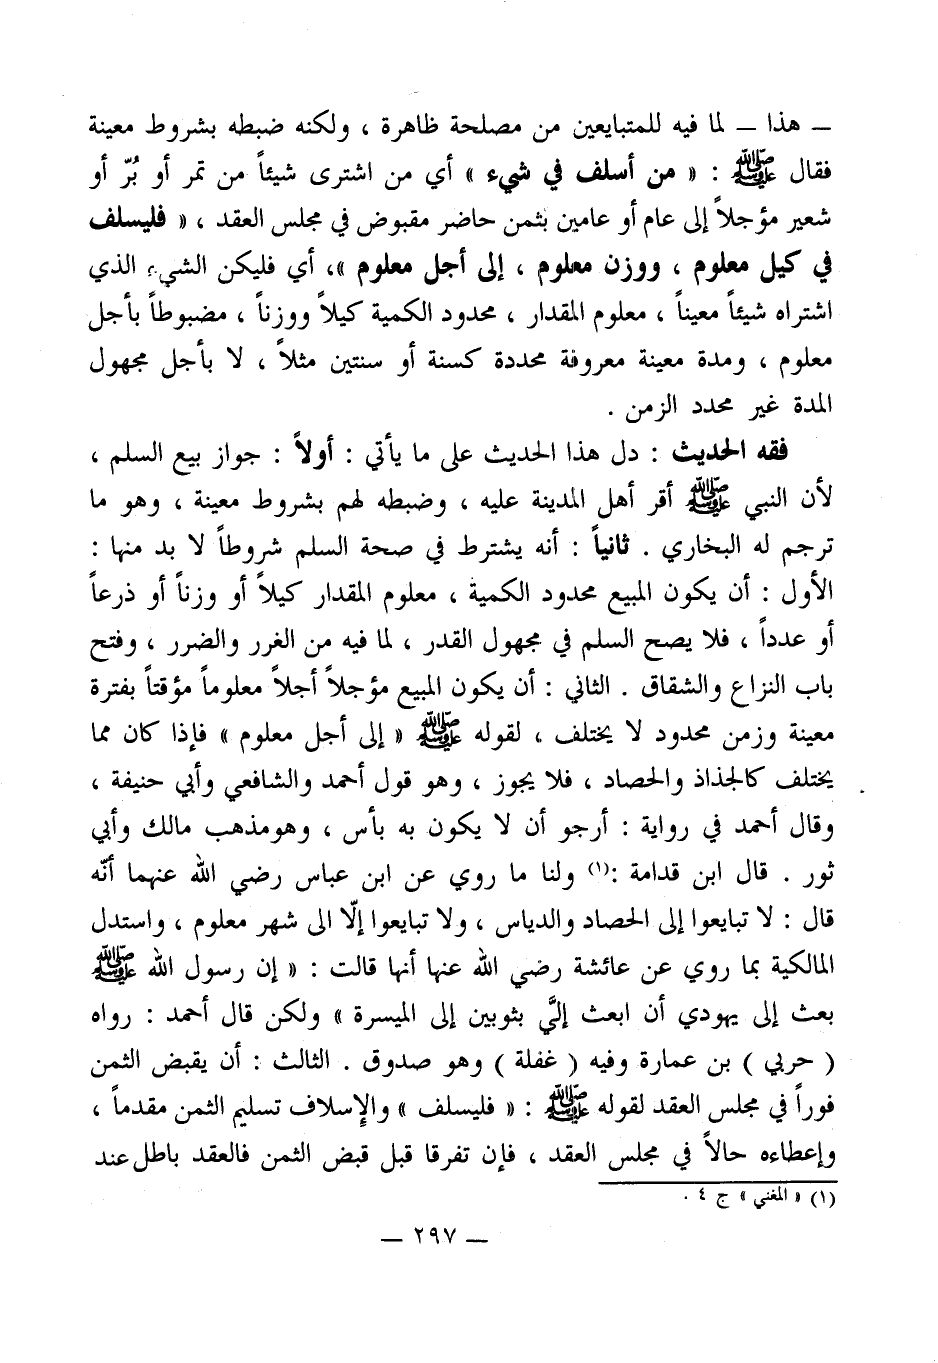 ـ هذا ـ لما فيه للمتبايعين من مصلحة ظاهرة ، ولكنه ضبطه بشروط معينة
فقال ﷺ : « من أسلف في شيء » أي من اشترى شيئاً من تمر أو بُرّ أو
شعير مؤجلاً إلى عام أو عامين بثمن حاضر مقبوض في مجلس العقد ، « فليسلف
في كيل معلوم ، ووزن معلوم ، إلى أجل معلوم »، أي فليكن الشيء الذي
اشتراه شيئاً معيناً ، معلوم المقدار ، محدود الكمية كيلاً ووزناً ، مضبوطاً بأجل
معلوم ، ومدة معينة معروفة محددة كسنة أو سنتين مثلاً ، لا بأجل مجهول
المدة غير محدد الزمن .
فقه الحديث : دل هذا الحديث على ما يأتي : أولاً : جواز بيع السلم ،
لأن النبي ﷺ أقر أهل المدينة عليه ، وضبطه لهم بشروط معينة ، وهو ما
ترجم له البخاري . ثانياً : أنه يشترط في صحة السلم شروطاً لا بد منها :
الأول : أن يكون المبيع محدود الكمية ، معلوم المقدار كيلاً أو وزناً أو ذرعاً
أو عدداً ، فلا يصح السلم في مجهول القدر ، لما فيه من الغرر والضرر ، وفتح
باب النزاع والشقاق . الثاني : أن يكون المبيع مؤجلاً أجلاً معلوماً مؤقتاً بفترة
معينة وزمن محدود لا يختلف ، لقوله ﷺ « إلى أجل معلوم » فإذا كان مما
يختلف كالجذاذ والحصاد ، فلا يجوز ، وهو قول أحمد والشافعي وأبي حنيفة ،
وقال أحمد في رواية : أرجو أن لا يكون به بأس ، وهومذهب مالك وأبي
ثور . قال ابن قدامة :(١) ولنا ما روي عن ابن عباس رضي الله عنهما أنّه
قال : لا تبايعوا إلى الحصاد والدياس ، ولا تبايعوا إلّا الى شهر معلوم ، واستدل
المالكية بما روي عن عائشة رضي الله عنها أنها قالت : « إن رسول الله ﷺ
بعث إلى يهودي أن ابعث إليَّ بثوبين إلى الميسرة » ولكن قال أحمد : رواه
( حربي ) بن عمارة وفيه ( غفلة ) وهو صدوق . الثالث : أن يقبض الثمن
فوراً في مجلس العقد لقوله ﷺ : « فليسلف » والإسلاف تسليم الثمن مقدماً ،
وإعطاءه حالاً في مجلس العقد ، فإن تفرقا قبل قبض الثمن فالعقد باطل عند
(١) « المغني » ج ٤ .
ـ ٢٩٧ ـ